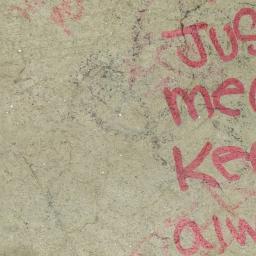 Jus
med
Kee
alw